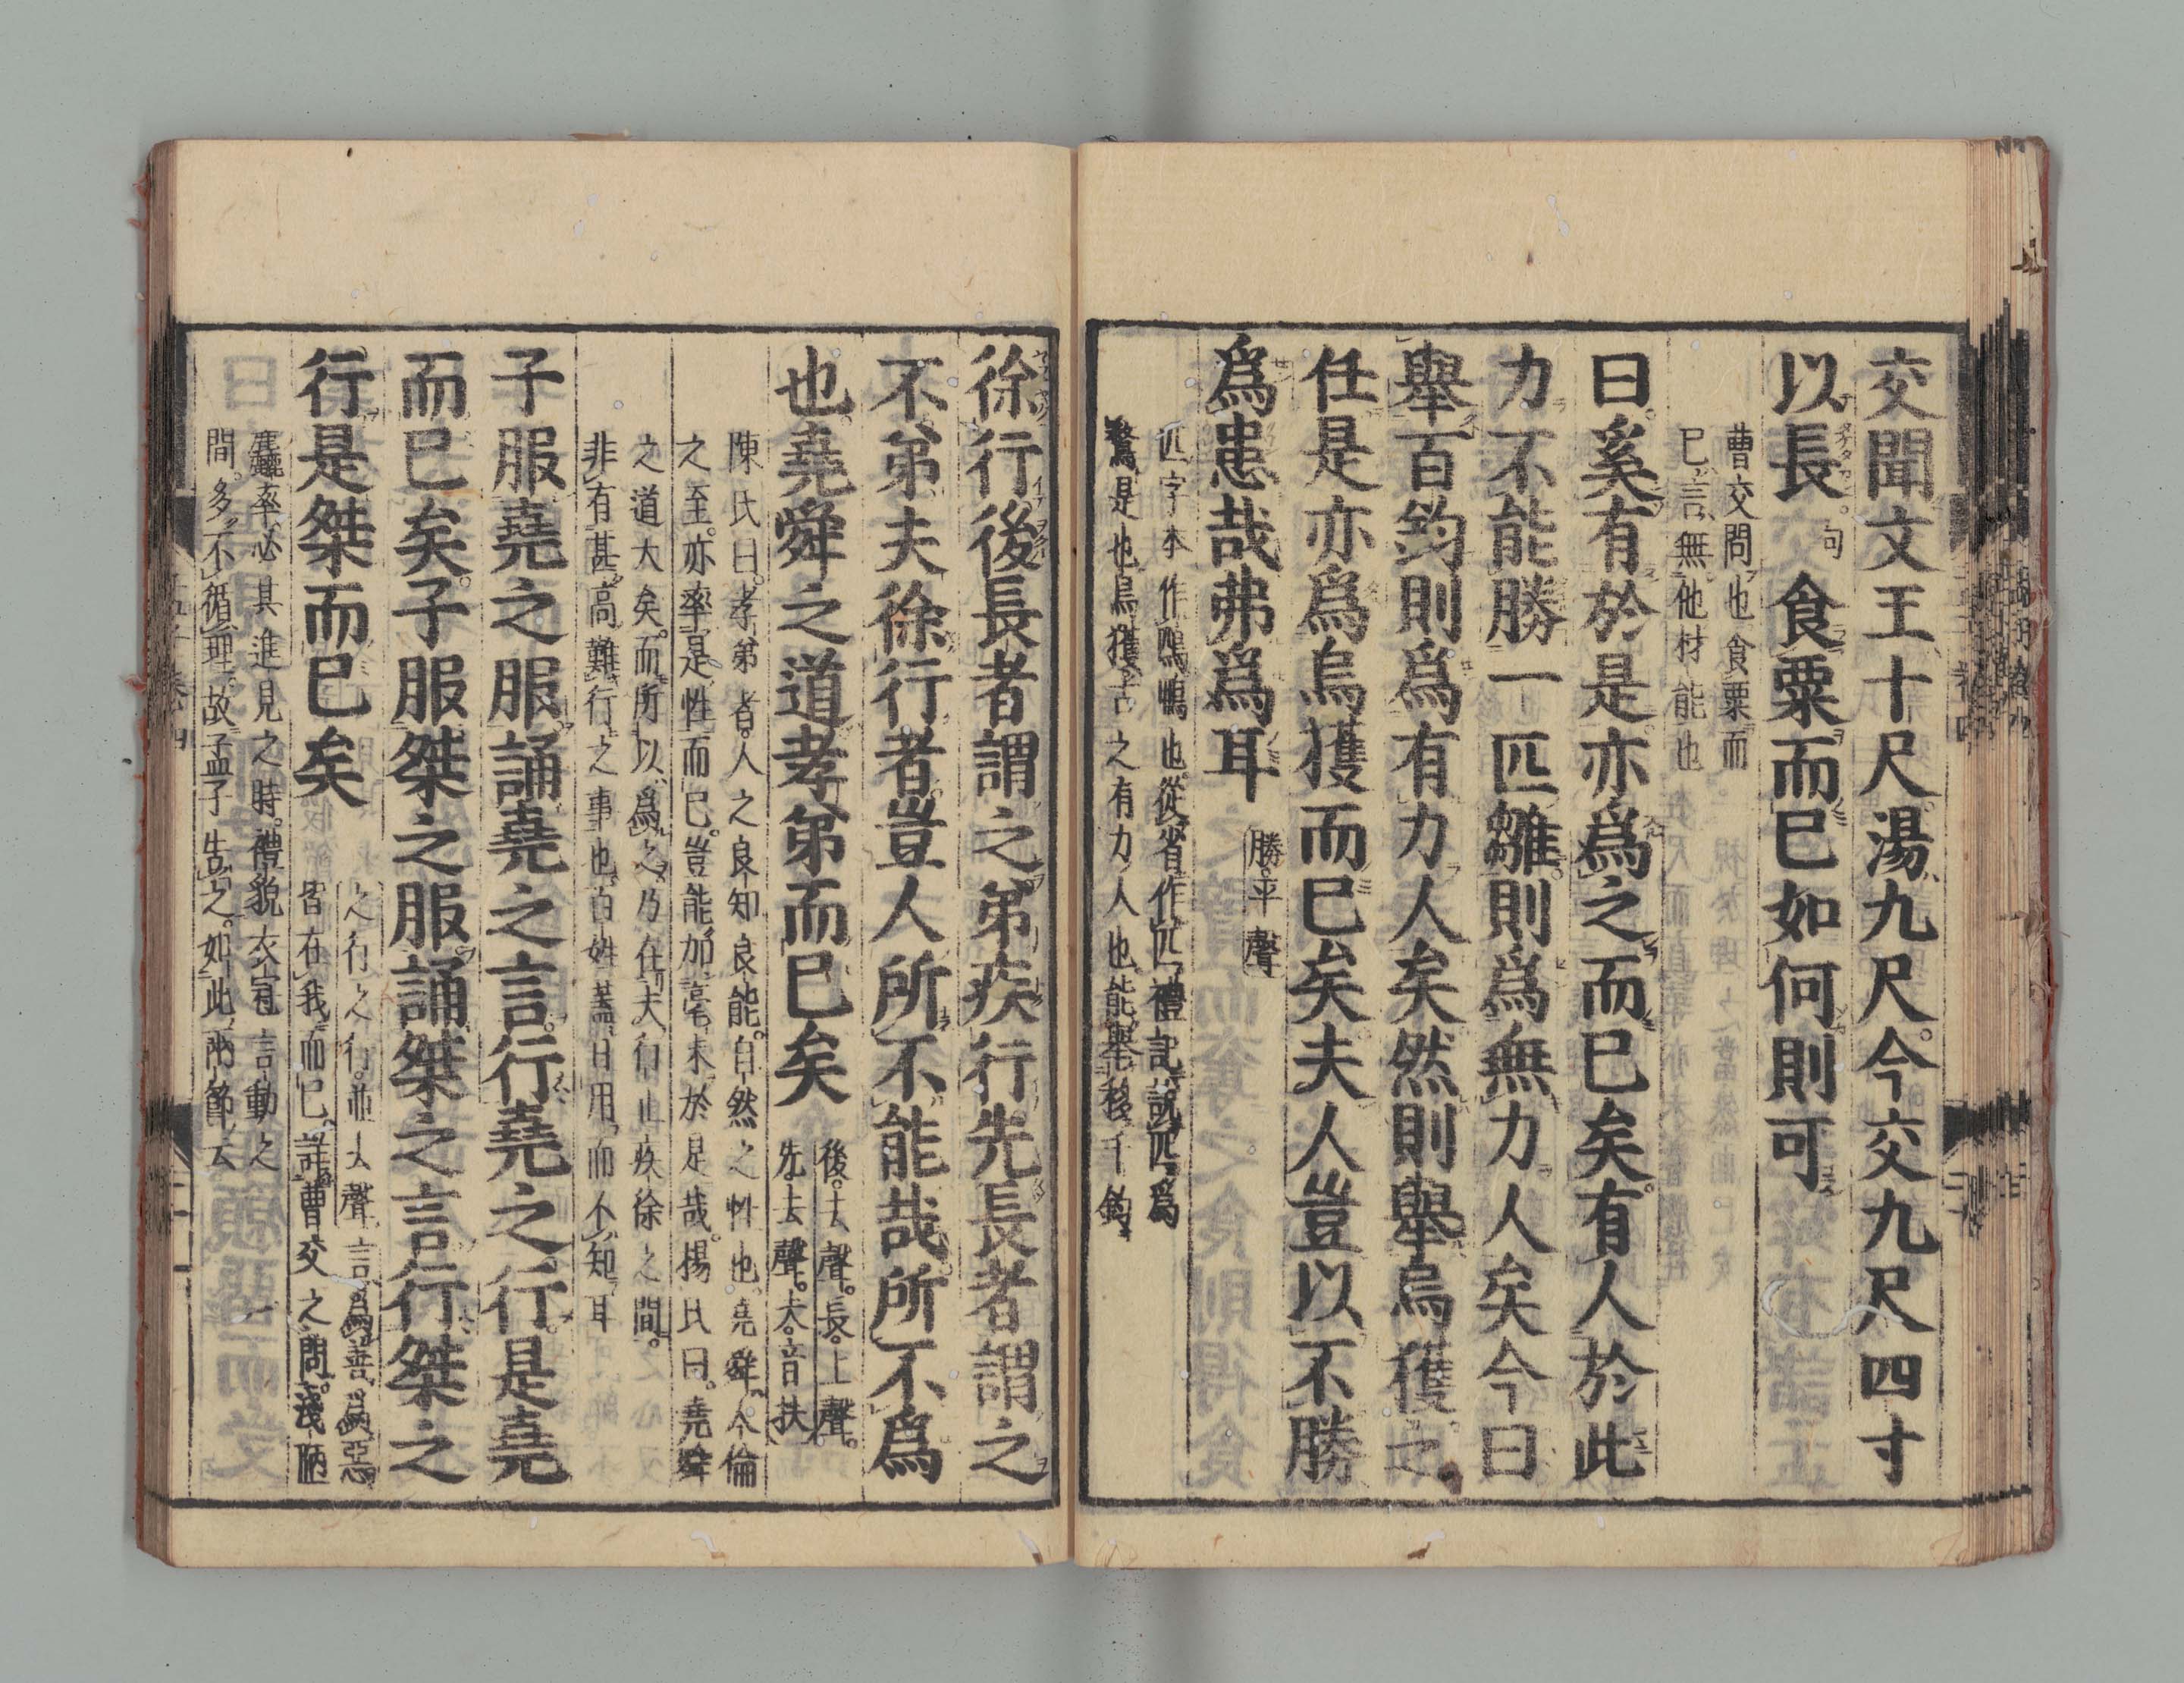 交聞文王十尺湯九尺今交九尺四寸
以長句食粟而已如何則可
曹交問也食粟而
已言無他材能也
曰奚有於是亦爲之而已矣有人於此
力不能勝一匹雛則爲無力人矣今曰
舉百鈞則爲有力人矣然則舉烏獲之
任是亦爲烏獲而已矣夫人豈以不勝
爲患哉弗爲耳
勝平聲
匹字本作鴄鴨也從省作匹禮記說匹爲
鶩是也烏獲古之有力人也能舉移千鈞
徐行後長者謂之弟疾行先長者謂之
不弟夫徐行者豈人所不能哉所不爲
也堯舜之道孝弟而已矣
後去聲長上聲
先去聲夫音扶
陳氏曰孝弟者人之良知良能自然之性也堯舜人倫
之至亦率是性而已豈能加毫末於是哉楊氏曰堯舜
之道大矣而所以爲之乃在夫行止疾徐之間
非有甚高難行之事也百姓蓋日用而不知耳
子服堯之服誦堯之言行堯之行是堯
而已矣子服桀之服誦桀之言行桀之
行是桀而已矣
之行之行並去聲言爲善爲惡
皆在我而已詳曹交之問淺陋
麤率必其進見之時禮貌衣冠言動之
間多不循理故孟子告之如此兩節云